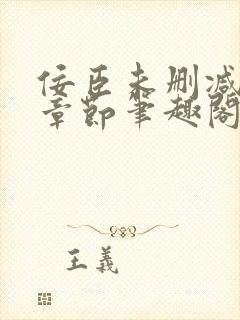 佞臣未删减
章节笔趣阁
王義